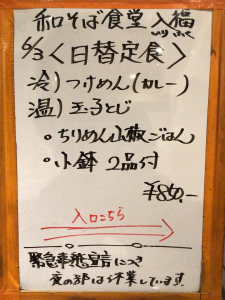 和そば食堂 入福
いりふく
6/3<日替定食>
冷)つけめん(カレー)
温)玉子とじ
・ちりめん山椒ごはん
・小鉢 2品付
¥850.-
入口こちら
緊急事態宣言につき
夜の部は休業しています。